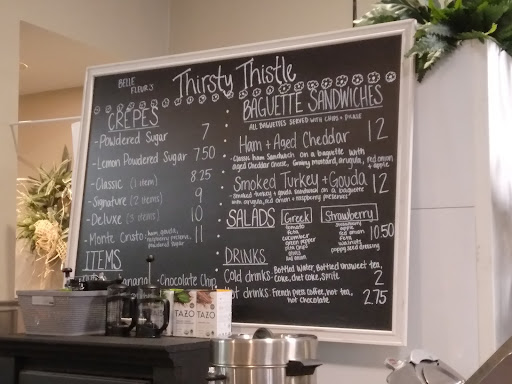 BELLE FLEUR'S
Thirsty Thistle
CREPES
- Powdered Sugar 7
- Lemon Powdered Sugar 7.50
- Classic (1 item) 8.25
- Signature (2 items) 9
- Deluxe (3 items) 10
- Monte Cristo: ham, gouda, 11
raspberry preserves,
powdered sugar
ITEMS
- Chocolate Chip
BAGUETTE SANDWICHES
ALL BAGUETTES SERVED WITH CHIPS +
Ham + Aged Cheddar 12
- Classic ham sandwich on a baguette with
aged cheddar cheese, grainy mustard, arugula, red onion
+ apple
Smoked Turkey + Gouda 12
- Smoked turkey + gouda sandwich on a baguette
with arugula, red onion + raspberry preserves
SALADS Greek Strawberry 10.50
tomato
feta
cucumber
green pepper
red onion
apple
red onion
feta
walnuts
poppy seed dressing
DRINKS
Cold drinks: Bottled Water, Bottled unsweet tea,
Coke, diet coke, Sprite 2
Hot drinks: French press coffee, hot tea,
hot chocolate 2.75
TAZO
TAZO